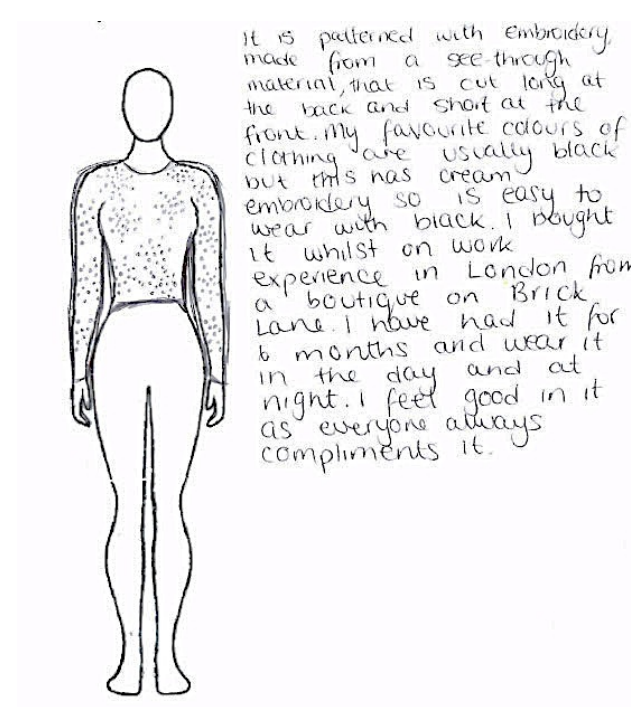 It is patterned with embroidery,
made from a see-through
material, that is cut long at
the back and short at the
front. My favourite colours of
clothing are usually black
but this has cream
embroidery so is easy to
wear with black. I bought
it whilst on work
experience in London from
a boutique on Brick
Lane. I have had it for
6 months and wear it
in the day and at
night. I feel good in it
as everyone always
compliments it.